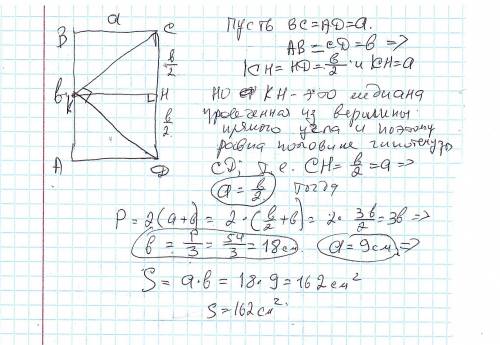 a
B
C
b/2
b
K
H
b/2
A
D
Пусть BC=AD=a.
AB=CD=b =>
CH=HD=b/2 и KH=a
Но KH - это медиана
проведенная из вершины
прямого угла и поэтому
равна половине гипотенузы
CD, т.е. CH=b/2=a =>
a=b/2 тогда
P=2(a+b)=2·(b/2+b)=2·3b/2=3b =>
b=P/3=54/3=18см. a=9см =>
S=a·b=18·9=162см²
S=162см²